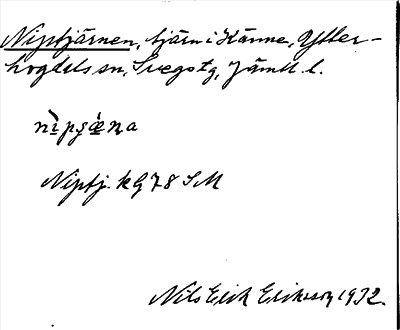 Niptjärnen, tjärn i Känne, Ytter-
hogdals sn, Svegs tg, Jämtl. l.
nìpʂæ̀ɳa
Niptj. kG 78 SM
Nils Erik Eriksson 1932.